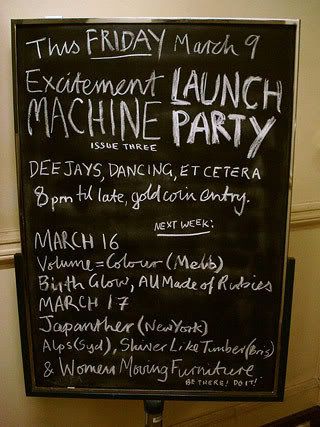 This FRIDAY March 9
Excitement LAUNCH
MACHINE PARTY
ISSUE THREE
DEEJAYS, DANCING, ET CETERA
8pm til late, gold coin entry.
NEXT WEEK:
MARCH 16
Volume = Colour (Melb)
Birth Glow, All Made of Rubies
MARCH 17
Japanther (New York)
Alps (Syd), Shiver Like Timber (Bris)
& Women Moving Furniture
BE THERE! DO IT!